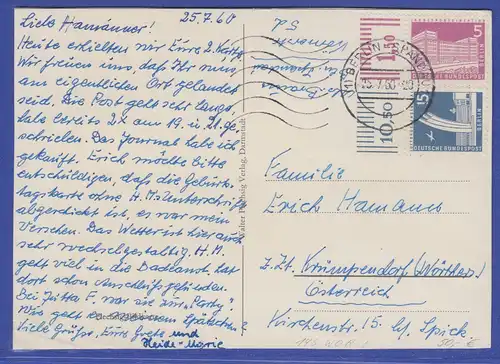 25.7.60
Liebe Hamänner!
Heute erhielten wir Eure 2. Karte.
Wir freuen uns, daß Ihr nun
am eigentlichen Ort gelandet
seid. Die Post geht sehr langs.
habe bereits 2x am 19. u. 21. ge-
schrieben. Das Journal habe ich
gekauft. Erich möchte bitte
entschuldigen, daß die Geburts-
tagskarte ohne H.M's Unterschrift
abgeschickt ist, es war mein
Versehen. Das Wetter ist hier auch
sehr wechselhaftig. H.M.
geht viel in die Badeanst. hat
dort schon Anschluß gefunden.
Bei Jutta F. war sie zur "Party"
Was geht es Spätzchen?
Viele Grüße, Eure Grete und
Heide-Marie
Walter Pennsig Verlag, Darmstadt
10,50
1,50
5
DEUTSCHE BUNDESPOST
BERLIN
15
DEUTSCHE BUNDESPOST
BERLIN
BERLIN-SPANDAU
Familie
Erich Hamann
z. Zt. Krumpendorf (Wörther
Österreich
Kirchenstr. 15. bei Spick